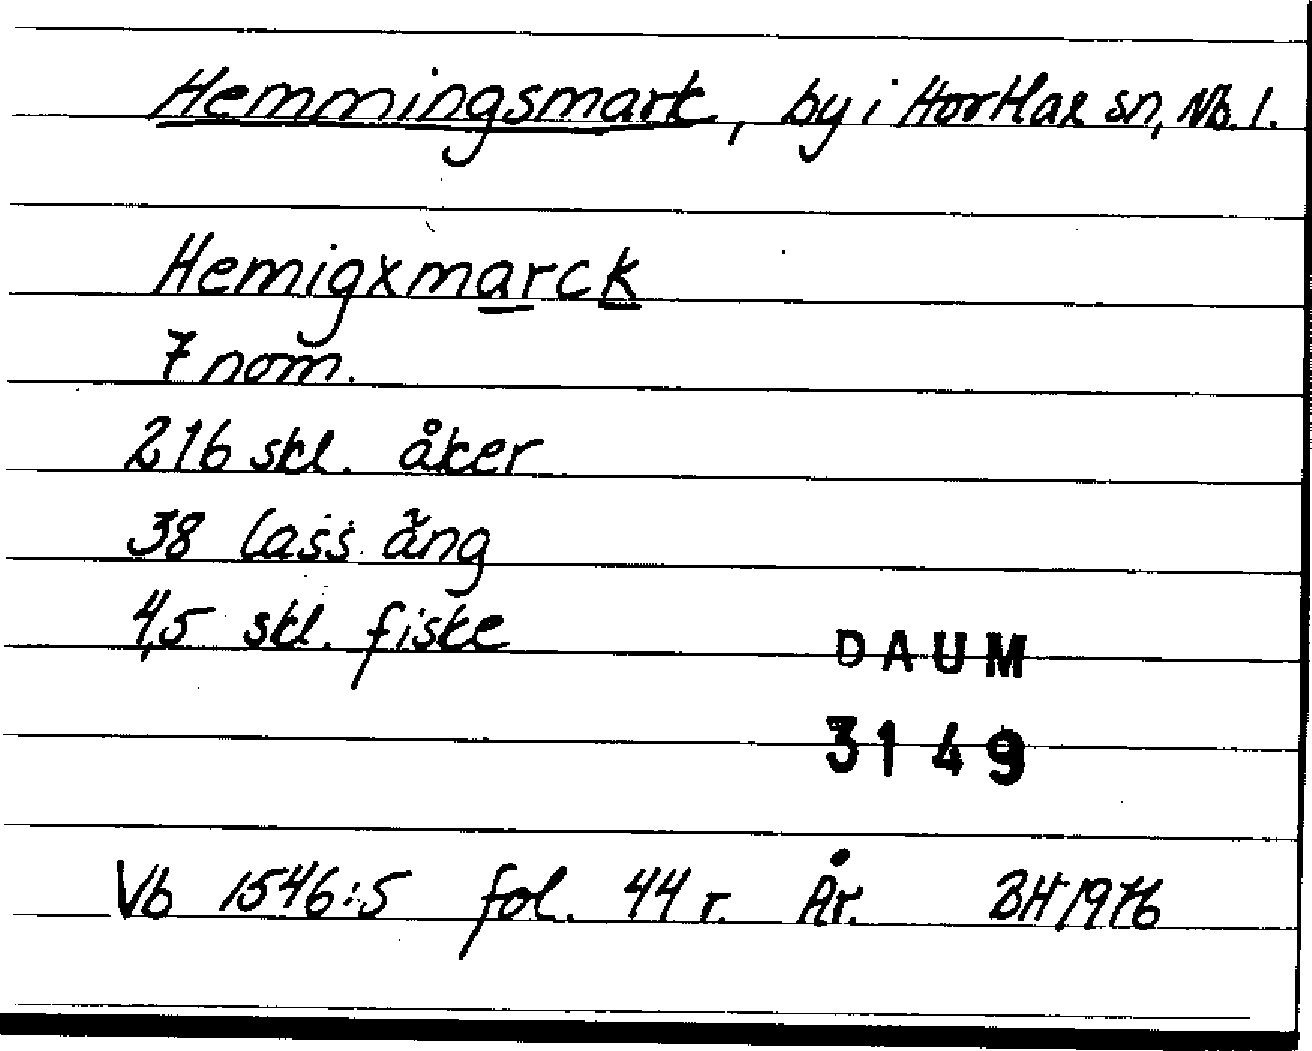 Hemmingsmark, by i Hortlax sn, Nb. l.
Hemigxmarck
7 nom.
216 skl. åker
38 lass äng
4,5 skl. fiske
DAUM
3149
Vb 1546:5 fol. 44 r. År. BH 1976